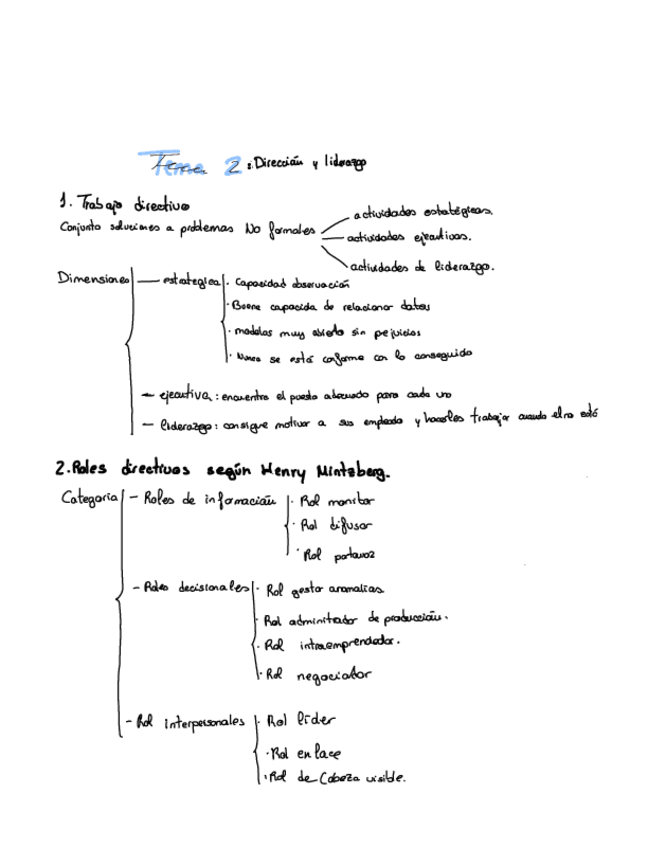 Tema 2: Dirección y liderazgo
1. Trabajo directivo
Conjunto soluciones a problemas No formales
actividades estratégicas.
actividades ejecutivas.
actividades de liderazgo.
Dimensiones
— estrategica
· Capacidad observación
· Buena capacida de relacionar datos
· modelos muy abierto sin pejuicios
· Nunca se está conforme con lo conseguido
— ejecutiva: encuentra el puesto adecuado para cada uno
— liderazgo: consigue motivar a sus empleado y hacerles trabajar cuando el no está
2. Roles directivos según Henry Mintzberg.
Categoria
— Roles de información
· Rol monitor
· Rol difusor
· Rol portavoz
— Roles decisionales
· Rol gestor anomalías
· Rol adminitrador de producción.
· Rol intraemprendedor.
· Rol negociador
— Rol interpersonales
· Rol líder
· Rol enlace
· Rol de Cabeza visible.